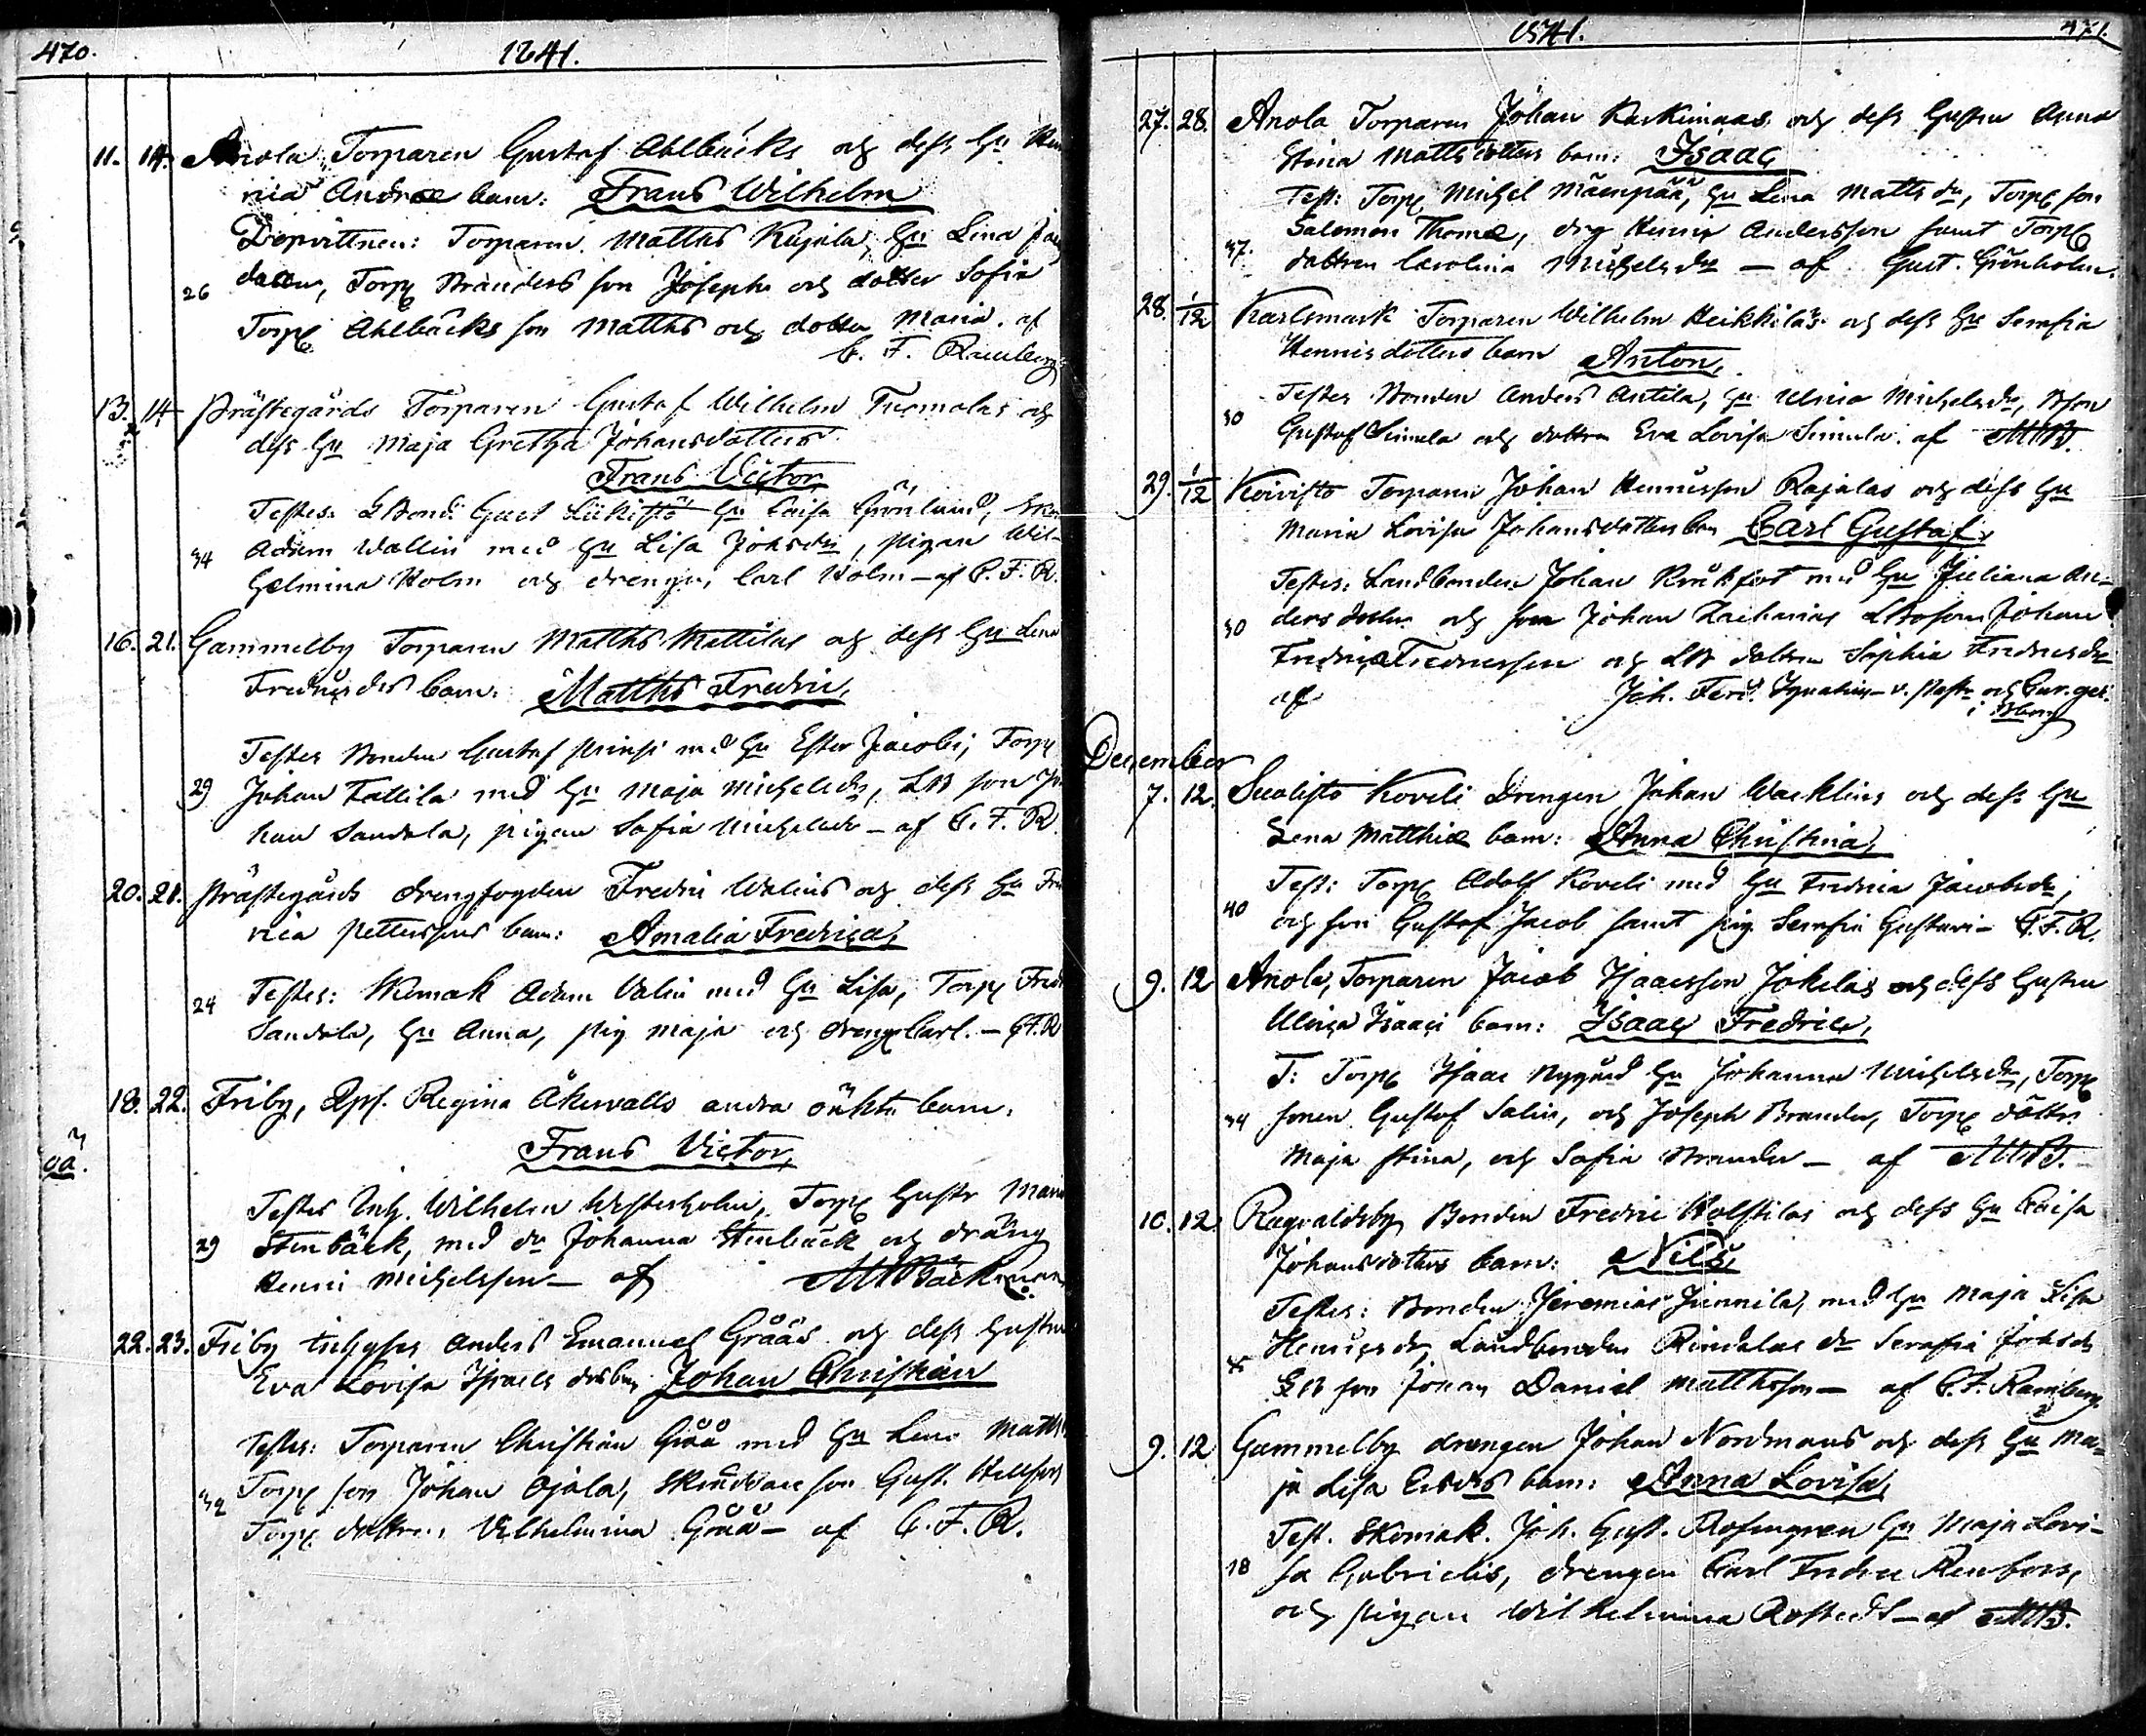 470.
1841.
11. 14. Anola, Torparen Gustaf Ahlbäcks och dess hu Hen
rica Andræ barn: Frans Wilhelm
Dopvittnen: Torparen Matths Kujala, hu Lina
26 dotter, Torp Branders son Joseph och dotter Sofia
Torp Ahlbäcks son Matths och dotter Maria. af
C. F. Ramberg
13. 14 Prästegårds Torparen Gustaf Wilhelm Tuomolas och
dess hu Maja Gretha Johansdotters
Frans Victor
Testes: LBond. Gust Liikistö hu Caisa Grönlund,
34 Adam Wallin med hu Lisa Johsdr, pigan Wil-
helmina Holm och drengen Carl Holm – af C. F. R.
16. 21. Gammelby Torparen Matths Mattilas och dess hu Lena
Fredricsdrs barn: Matths Fredric,
Testes Bonden Gustaf Prinsi med hu Ester Jacobi, Torp
29 Johan Fattila med hu Maja Michelsdr, LB son Jo
han Sandola, pigan Sofia Michelsdr – af C. F. R.
20. 21. Prästegårds drengfogden Fredric Walins och dess hu Fred
rica Petterssons barn: Amalia Fredrica,
24 Testes: Skomak Adam Valin med hu Lisa, Torp Fredr
Sandola, hu Anna, pig Maja och dreng Carl. – C.F.R
18. 22. Friby, Qps. Regina Åkervalls andra oäkta barn.
Frans Victor,
Testes Inh. Wilhelm Westerholm, Torp hustr Maria
29 Stenbäck, med dr Johanna Stenbäck och dräng
Henric Michelsson – af MWBäckman
22. 23. Friby inhyses Anders Emanuel Gråås och dess hustru
Eva Lovisa Israels drs barn Johan Christian
Testes: Torparen Christian Gråå med hu Lena Matts
32 Torp son Johan Ojala, Skräddare son Gust. Hellsten
Torp dottren Vilhelmina Gråå – af C. F. R.
1841.
471.
27. 28. Anola Torparen Johan Karkimaas och dess hustru Anna
Stina Mattsdotters barn: Isaac
Test: Torp Michel Mäenpää, hu Lena Matts dr, Torp son
Salomon Thomæ, drg Henric Andersson samt Torp
37. dottren Carolina Michelsdr – af Gust. Grönholm.
28. 1/12 Karlsmark Torparen Wilhelm Heikkiläs och dess hu Serafia
Henricsdotters barn Anton,
Testes Bonden Anders Antila, hu Ulrica Michelsdr, Bson
30 Gustaf Simula och dottren Eva Lovisa Simula. af MWB.
29. 1/12 Koivisto Torparen Johan Henricsson Rajalas och dess hu
Maria Lovisa Johansdotters barn Carl Gustaf,
Testes: Landbonden Johan Kråkfot med hu Juliana An-
30 ders dotter och son Johan Zacharias LBoson Johan
Fredric Fredricsson och LB dottren Sophia Fredricsdr
af Joh. Ferd. Ignatius – v. Past. och Cur. ger.
i Bborg
December
7. 12. Suolisto Koveli Drengen Johan Wacklins och dess hu
Lena Matthiæ barn: Anna Christina,
Test: Torp Adolf Koveli med hu Fredrica Jacobsdr,
40 och son Gustaf Jacob samt pig Serafia Gustavi – C.F.R.
9. 12 Anola, Torparen Jacob Isaacsson Jokelas och dess hustru
Ulrica Isaaci barn: Isaac Fredric,
T: Torp Isaac Nygård hu Johanna Michelsdr, Torp
34 sonen Gustaf Salin, och Joseph Brander, Torp döttr.
Maja Stina, och Sofia Brander – af MWB.
10. 12. Ragvaldsby Bonden Fredric Kolstilas och dess hu Caisa
Johansdotters barn: Nils,
Testes: Bonden Jeremias Junnila, med hu Maja Lisa
Henricsdr, Landbonden Rindalas dr Serafia Johsdr
LB son Johan Daniel Matthsson – af C. F. Ramberg
9. 12 Gammelby drengen Johan Nordmans och dess hu Ma-
ja Lisa Ericsdrs barn: Anna Lovisa,
Test. Skomak. Joh. Gust. Rosengren hu Maja Lovi-
18 sa Gabrielis, drengen Carl Fredric Renfors,
och pigan Wilhelmina Rostedt – af MWB.